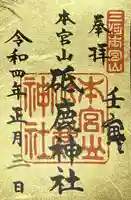 三河本宮山
奉拝
壬寅
本宮山
砥鹿神社
本宮山
神社
令和四年正月二日